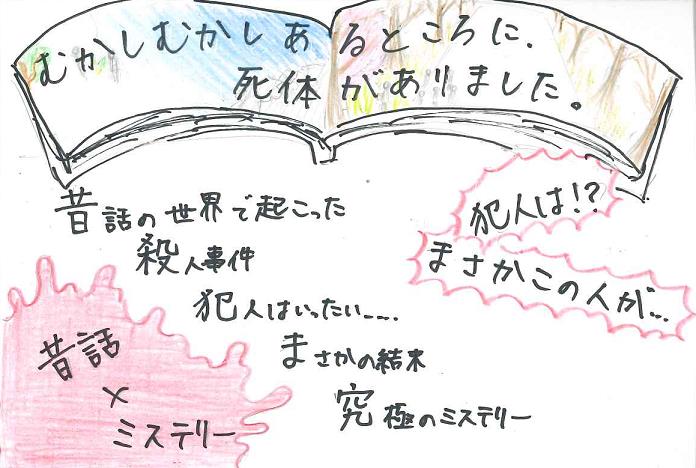 むかしむかしあるところに、
死体がありました。
昔話の世界で起こった
殺人事件
犯人はいったい……
まさかの結末
究極のミステリー
犯人は!?
まさかこの人が…
昔話
×
ミステリー